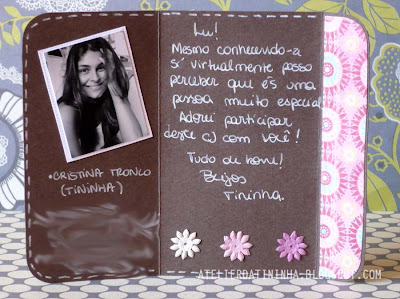 •CRISTINA TRONCO
(TININHA)
Lu!
Mesmo conhecendo-a
só virtualmente posso
perceber que és uma
pessoa muito especial
Adorei participar
deste cj com você!
Tudo de bom!
Beijos
Tininha.
ATELIERDATININHA.BLOGSPOT.COM